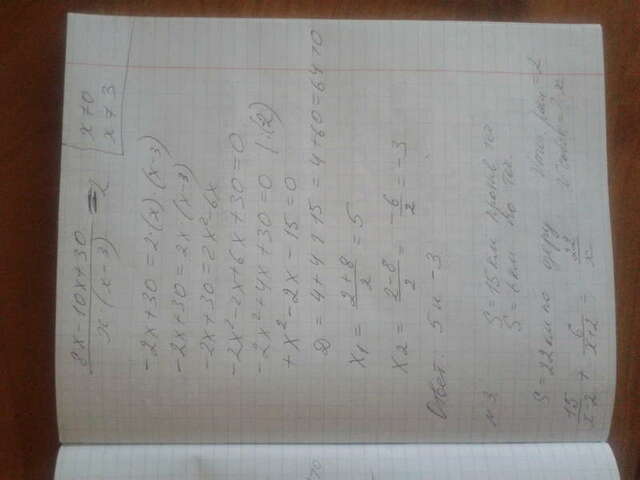 8x-10x+30 / x·(x-3) = 2 [x≠0
x≠3
-2x+30=2·(x)·(x-3)
-2x+30=2x(x-3)
-2x+30=2x²-6x
-2x²-2x+6x+30=0
-2x²+4x+30=0 |:(2)
+x²-2x-15=0
D=4+4·15=4+60=64>0
x1 = 2+8 / 2 = 5
x2 = 2-8 / 2 = -6 / 2 = -3
Ответ: 5 и -3
№3
S=15км против теч
S=6км по теч.
S=22км по озеру Vтеч. реки=2
Vлодк=x
15 / x-2 + 6 / x+2 = 22 / x